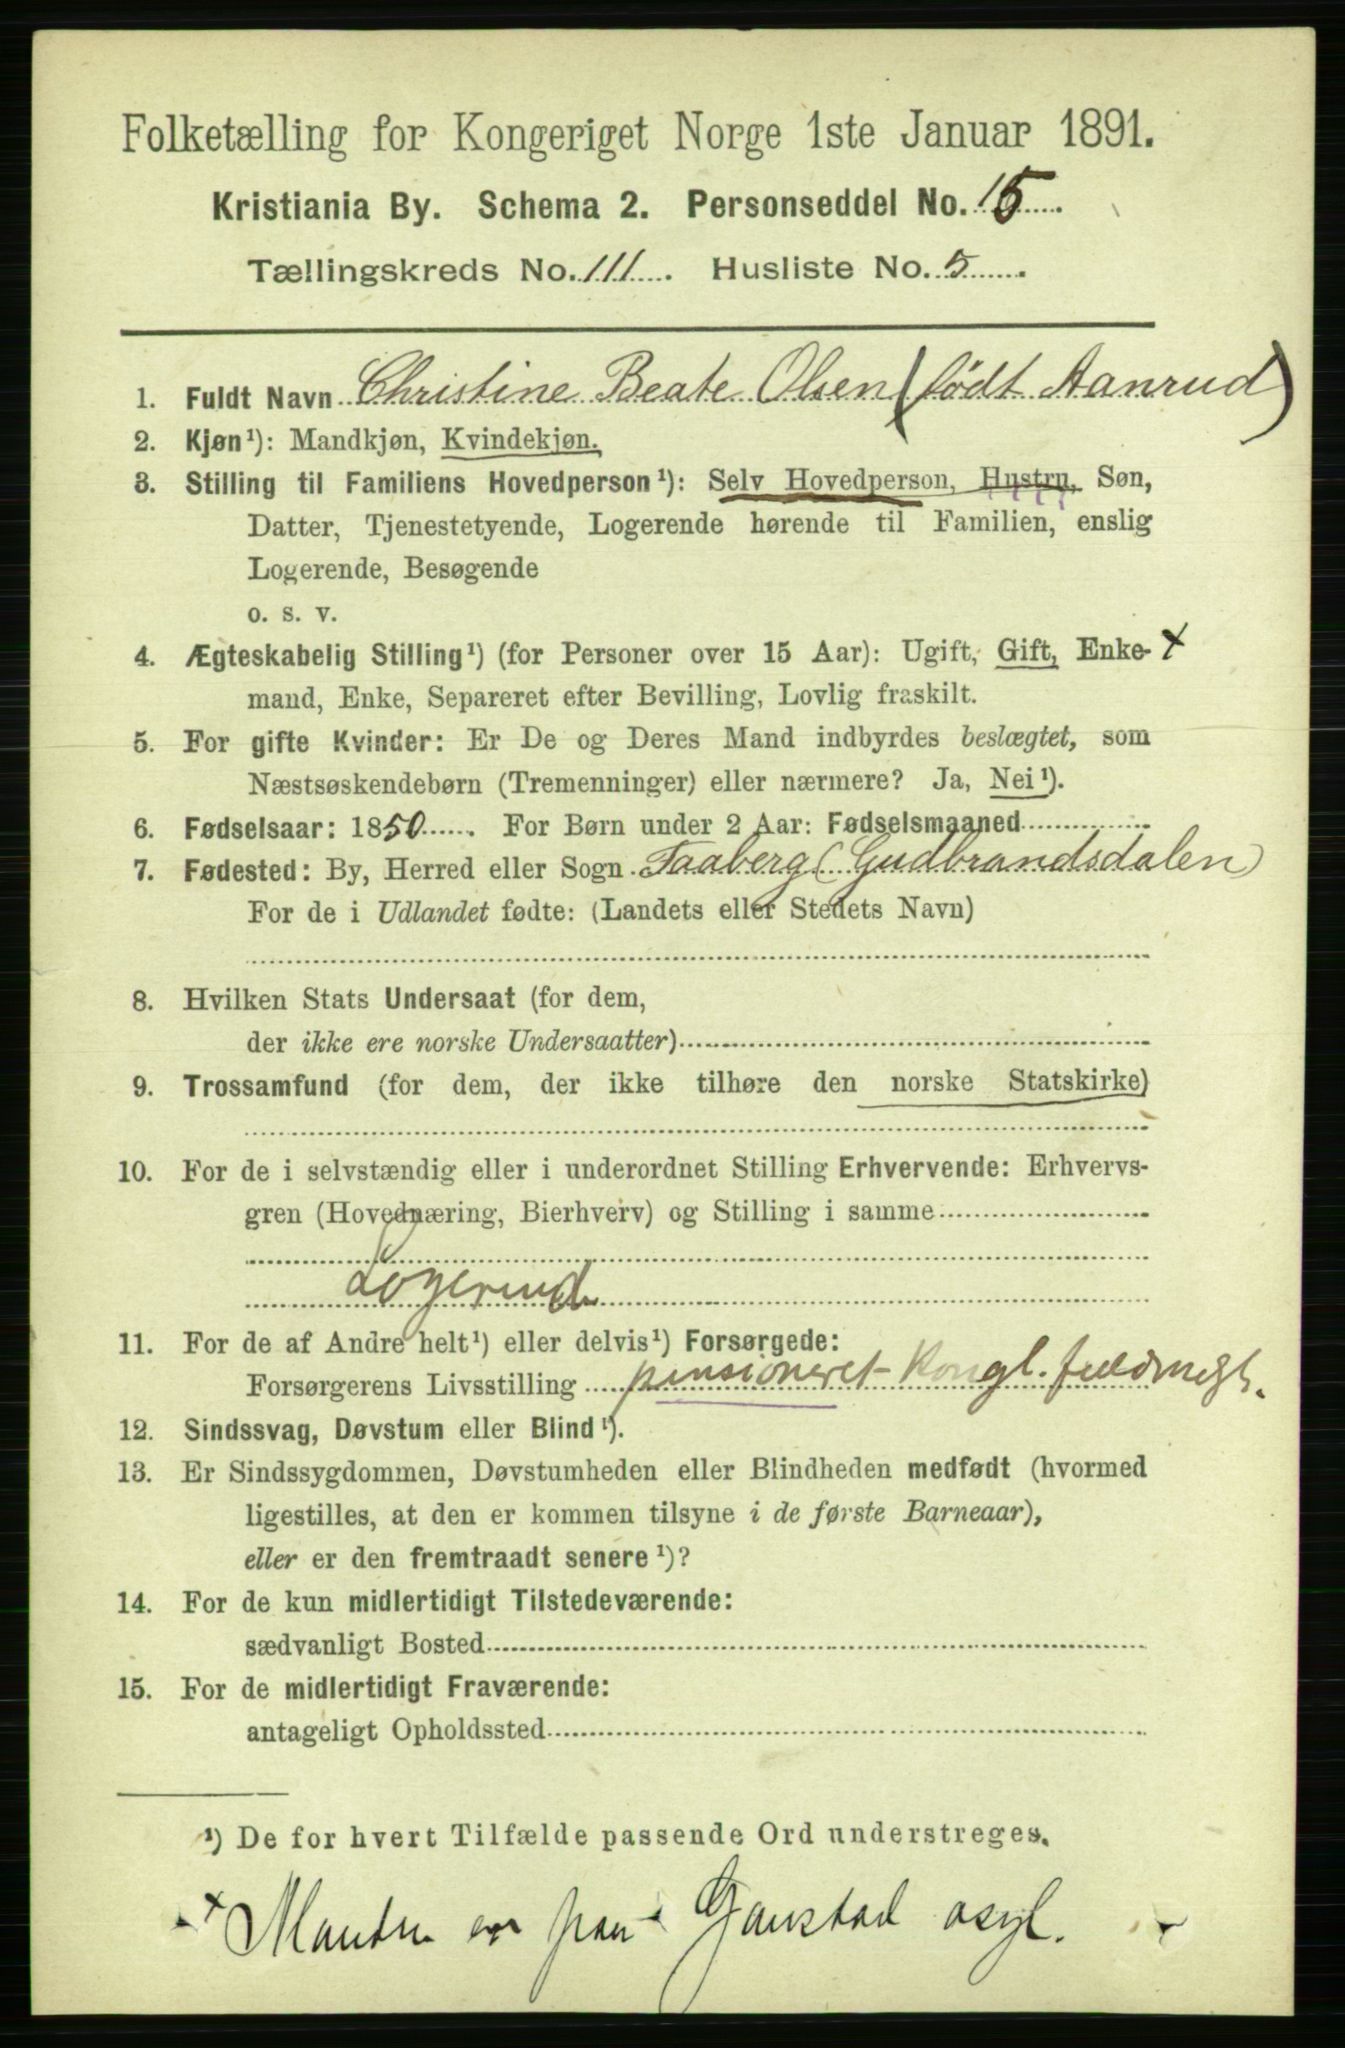 Folketælling for Kongeriget Norge 1ste Januar 1891.
Kristiania By. Schema 2. Personseddel No. 15
Tællingskreds No. 111. Husliste No. 5.
1. Fuldt Navn Christine Beate Olsen (født Aanrud)
2. Kjøn¹): Mandkjøn, Kvindekjøn.
3. Stilling til Familiens Hovedperson¹): Selv Hovedperson, Hustru, Søn,
Datter, Tjenestetyende, Logerende hørende til Familien, enslig
Logerende, Besøgende
o. s. v.
4. Ægteskabelig Stilling¹) (for Personer over 15 Aar): Ugift, Gift, Enke- +
mand, Enke, Separeret efter Bevilling, Lovlig fraskilt.
5. For gifte Kvinder: Er De og Deres Mand indbyrdes beslægtet, som
Næstsøskendebørn (Tremenninger) eller nærmere? Ja, Nei¹).
6. Fødselsaar: 1850. For Børn under 2 Aar: Fødselsmaaned
7. Fødested: By, Herred eller Sogn Faaberg (Gudbrandsdalen)
For de i Udlandet fødte: (Landets eller Stedets Navn)
8. Hvilken Stats Undersaat (for dem,
der ikke ere norske Undersaatter)
9. Trossamfund (for dem, der ikke tilhøre den norske Statskirke)
10. For de i selvstændig eller i underordnet Stilling Erhvervende: Erhvervs-
gren (Hovednæring, Bierhverv) og Stilling i samme
11. For de af Andre helt¹) eller delvis¹) Forsørgede:
Forsørgerens Livsstilling pensioneret Kongl. fuldmægt.
12. Sindssvag, Døvstum eller Blind¹).
13. Er Sindssygdommen, Døvstumheden eller Blindheden medfødt (hvormed
ligestilles, at den er kommen tilsyne i de første Barneaar),
eller er den fremtraadt senere¹)?
14. For de kun midlertidigt Tilstedeværende:
sædvanligt Bosted
15. For de midlertidigt Fraværende:
antageligt Opholdssted
¹) De for hvert Tilfælde passende Ord understreges.
+ Manden er paa Gaustad asyl.